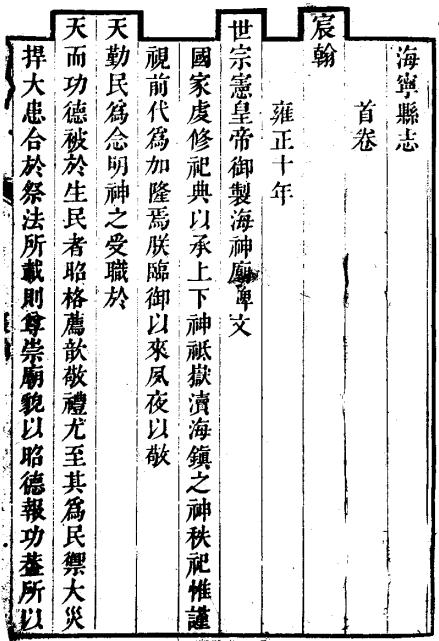 海寧縣志
首卷
宸翰
雍正十年
世宗憲皇帝御製海神廟碑文
國家虔修祀典以承上下神祗嶽瀆海鎮之神秩祀惟謹
視前代為加隆焉朕臨御以來夙夜以敬
天勤民為念明神之受職於
天而功德被於生民者昭格薦歆敬禮尤至其為民禦大災
捍大患合於祭法所載則尊崇廟貌以昭德報功葢所以